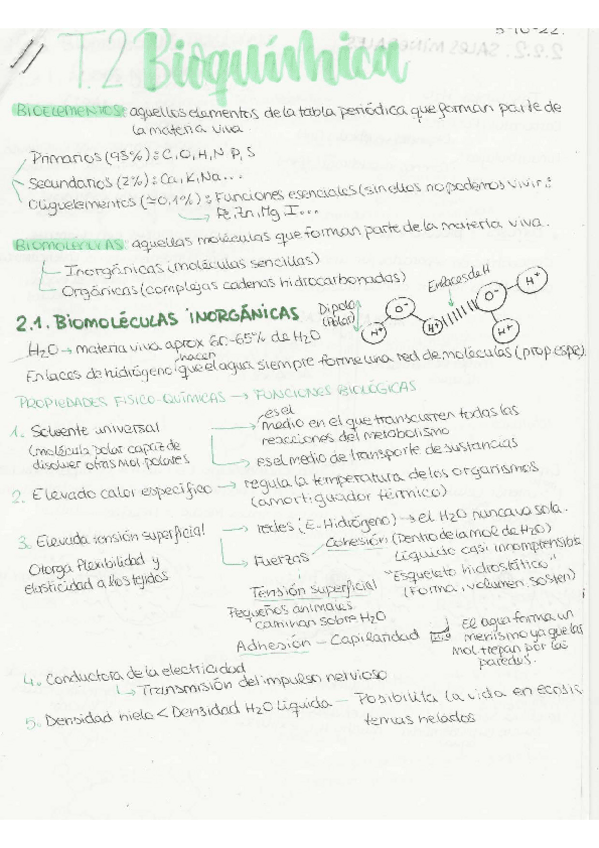 5-10-22.
T.2 Bioquímica
BIOELEMENTOS: aquellos elementos de la tabla periódica que forman parte de
la materia viva.
Primarios (98%): C, O, H, N P, S
Secundarios (2%): Ca, K, Na...
Oligoelementos (≃0,1%): Funciones esenciales (sin ellos no podemos vivir):
Fe, Zn, Mg, I...
BIOMOLÉCULAS: aquellas moléculas que forman parte de la materia viva.
Inorgánicas (moléculas sencillas)
Orgánicas (complejas cadenas hidrocarbonadas)
2.1. BIOMOLÉCULAS INORGÁNICAS
Dipolo
(Polar)
Enlaces de H
O⁻ H⁺ H⁺ O⁻ H⁺ H⁺
H₂O → materia viva aprox 60-65% de H₂O
Enlaces de hidrógeno hacen que el agua siempre forme una red de moléculas (prop. espe).
PROPIEDADES FISICO-QUÍMICAS → FUNCIONES BIOLÓGICAS
1. Solvente universal
(molécula polar capaz de
disolver otras mol polares
es el
medio en el que transcurren todas las
reacciones del metabolismo
es el medio de transporte de sustancias
2. Elevado calor específico → regula la temperatura de los organismos
(amortiguador térmico)
3. Elevada tensión superficial
Otorga flexibilidad y
elasticidad a los tejidos
redes (E. Hidrógeno) → el H₂O nunca va sola.
Fuerzas
Cohesión (Dentro de la mol de H₂O)
Líquido casi incomprensible
"Esqueleto hidrostático"
(Forma, volumen, sosten)
Tensión superficial
Pequeños animales
caminan sobre H₂O
Adhesión - Capilaridad
El agua forma un
menismo ya que las
mol trepan por las
paredes.
4. Conductora de la electricidad
Transmisión del impulso nervioso
5. Densidad hielo < Densidad H₂O líquida - Posibilita la vida en ecosis
temas helados